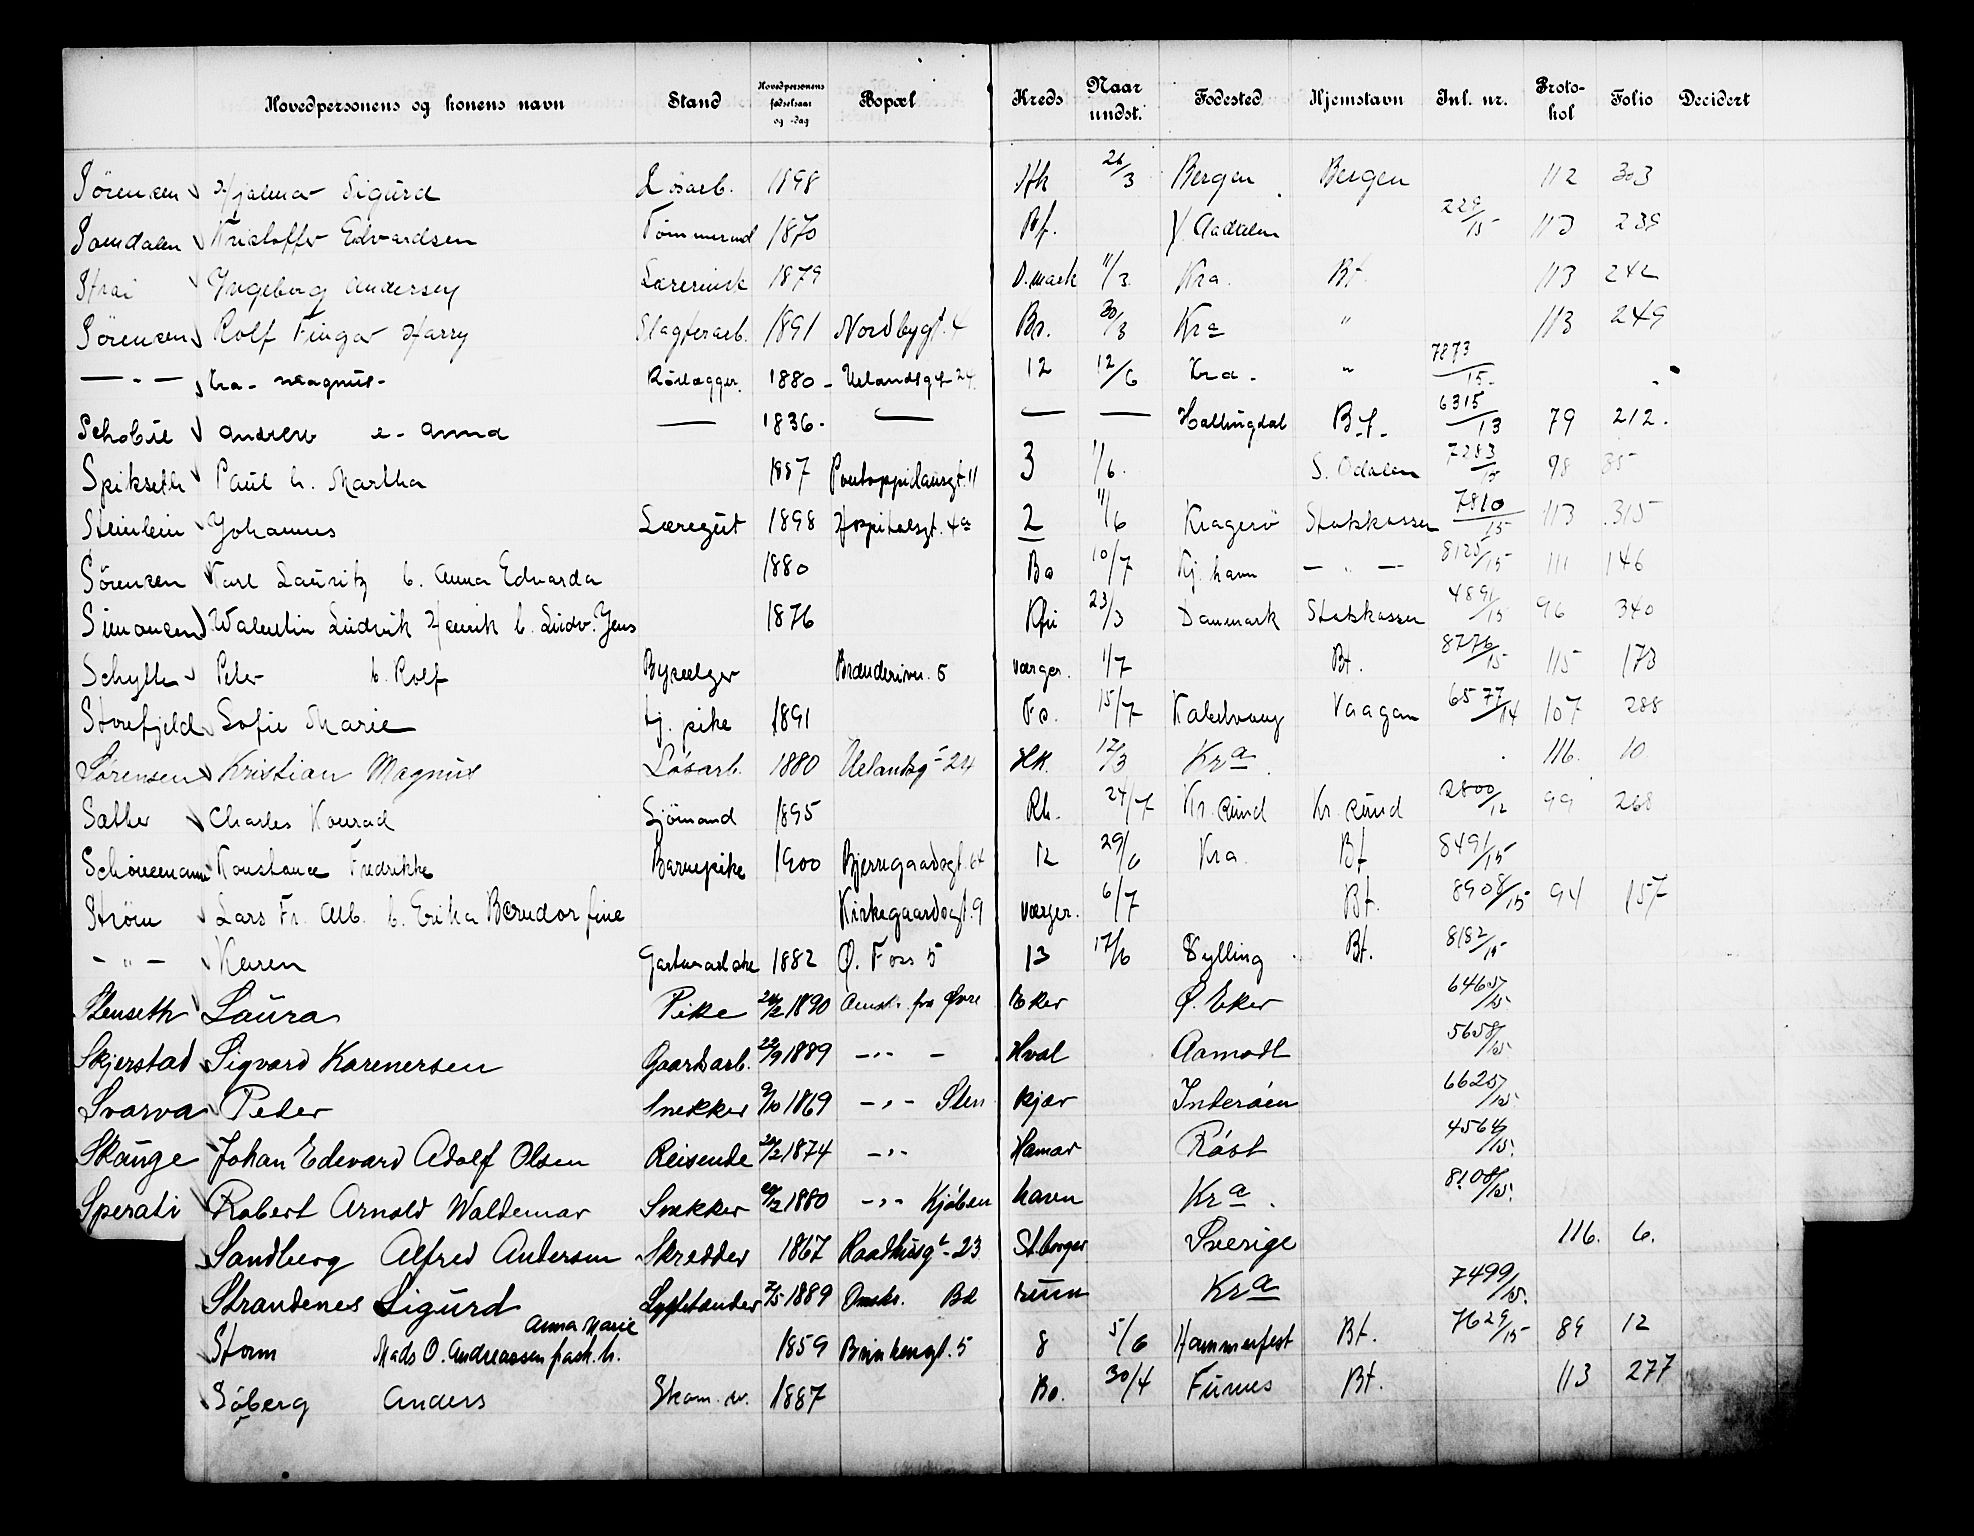 Hovedpersonens og konens navn Stand Hovedpersonens fødselsaar og -dag Bopæl Kreds Naar undst. Fødested Hjemstavn Inl. nr. Proto-kol Folio Decidert
Sörensen Hjalmar Sigurd Løsarb. 1898 Hk 26/3 Bergen Bergen 112 303
Kristoffer Edvardsen Tömmermd 1870 Bf. Aadalen 229/15 113 239
Strai Ingeborg Andersen Lærerinde 1879 D.mark 11/3 Kra. Bt. 113 242
Sörensen Rolf Finger Harry Slagterarb. 1891 Nordbygt. 4 Bo. 30/3 Kra " 113 249
— " — Kra. Magnus Rörlægger. 1880 Uelandsgt 24. 12 12/6 Kra. " 7873/15
Schobie Andrew e. Anna — 1836. — — — Hallingdal B.f. 6315/13 79 212.
Spikseth Paul h. Martha 1887 Pontoppidansgt. 11 3 1/6. S. Odalen 7283/15 98 35
Steinlein Johannes Læregut 1898 Hospitalsgt. 4a 2 11/6 Kragerö Statskassen 7810/15 113 315
Sörensen Karl Lauritz b. Anna Edvarda 1880 Bo 10/7 Kj.havn — " — 8125/15 111 146
Simonsen Valentin Ludvik Henrik b. Ludv. Jens 1876 23/3 Danmark Statskassen 4891/15 96 340
Schytte Peter b. Rolf Byselger Brænderivn. 5 værger. 1/7 Bt. 8776/15 115 173
Storefjeld Sofie Marie tj. pike 1891 Fo. 15/7 Kabelvaag Vaagan 6577/14 107 288
Sørensen Kristian Magnus Løsarb. 1880 Uelandsgt 24 HK. 12/3 Kra. 116. 10
Sæther Charles Konrad Sjömand 1895 Rh. 24/7 Kr. sund Kr. sund 2800/12 99 268
Schönemann Konstance Fredrikke Barnepike 1900 Bjerregaardsgt. 64 12 29/6 Kra. Bt 8491/15
Ström Lars Fr. Alb. b. Erika Berndorfine Kirkegaardsgt. 9 værger. 6/7 Bt. 8908/15 94 157
— " — Karen 1882 Ø. Foss 5 13 17/6 Sylling Bt. 8182/15
Stenseth Laura Pike 1890 Amst. fra Øvre Eker Ø. Eker 6465/15
Skjerstad Sigvard Karenersen Gaardsarb. 1889 — " — Hval Aamodt 5658/15
Svarva Peder Snekker 9/10 1869 — " — Stenkjær Inderøen 6625/15
Skauge Johan Edevard Adolf Olsen Reisende 1874 — " — Hamar Røst 4564/15.
Sperati Robert Arnold Waldemar Snekker 1880 — " — Kjøbenhavn Kra. 8108/15.
Sandberg Alfred Andersen Skredder 1867 Raadhusgt. 23 St.borger Sverige 116. 6.
Strandenes Sigurd Lygtetænder 2/5 1889 Omstr. Bærum Kra 7499/15.
Anna Marie
Storm Mads O. Andreassen frask. h. 1859 Brinkengt. 5 8 5/6 Hammerfest Bt. 7629/15 89 12
Söberg Anders 1887 Bo. 30/4 Furnes Bt. 113 277